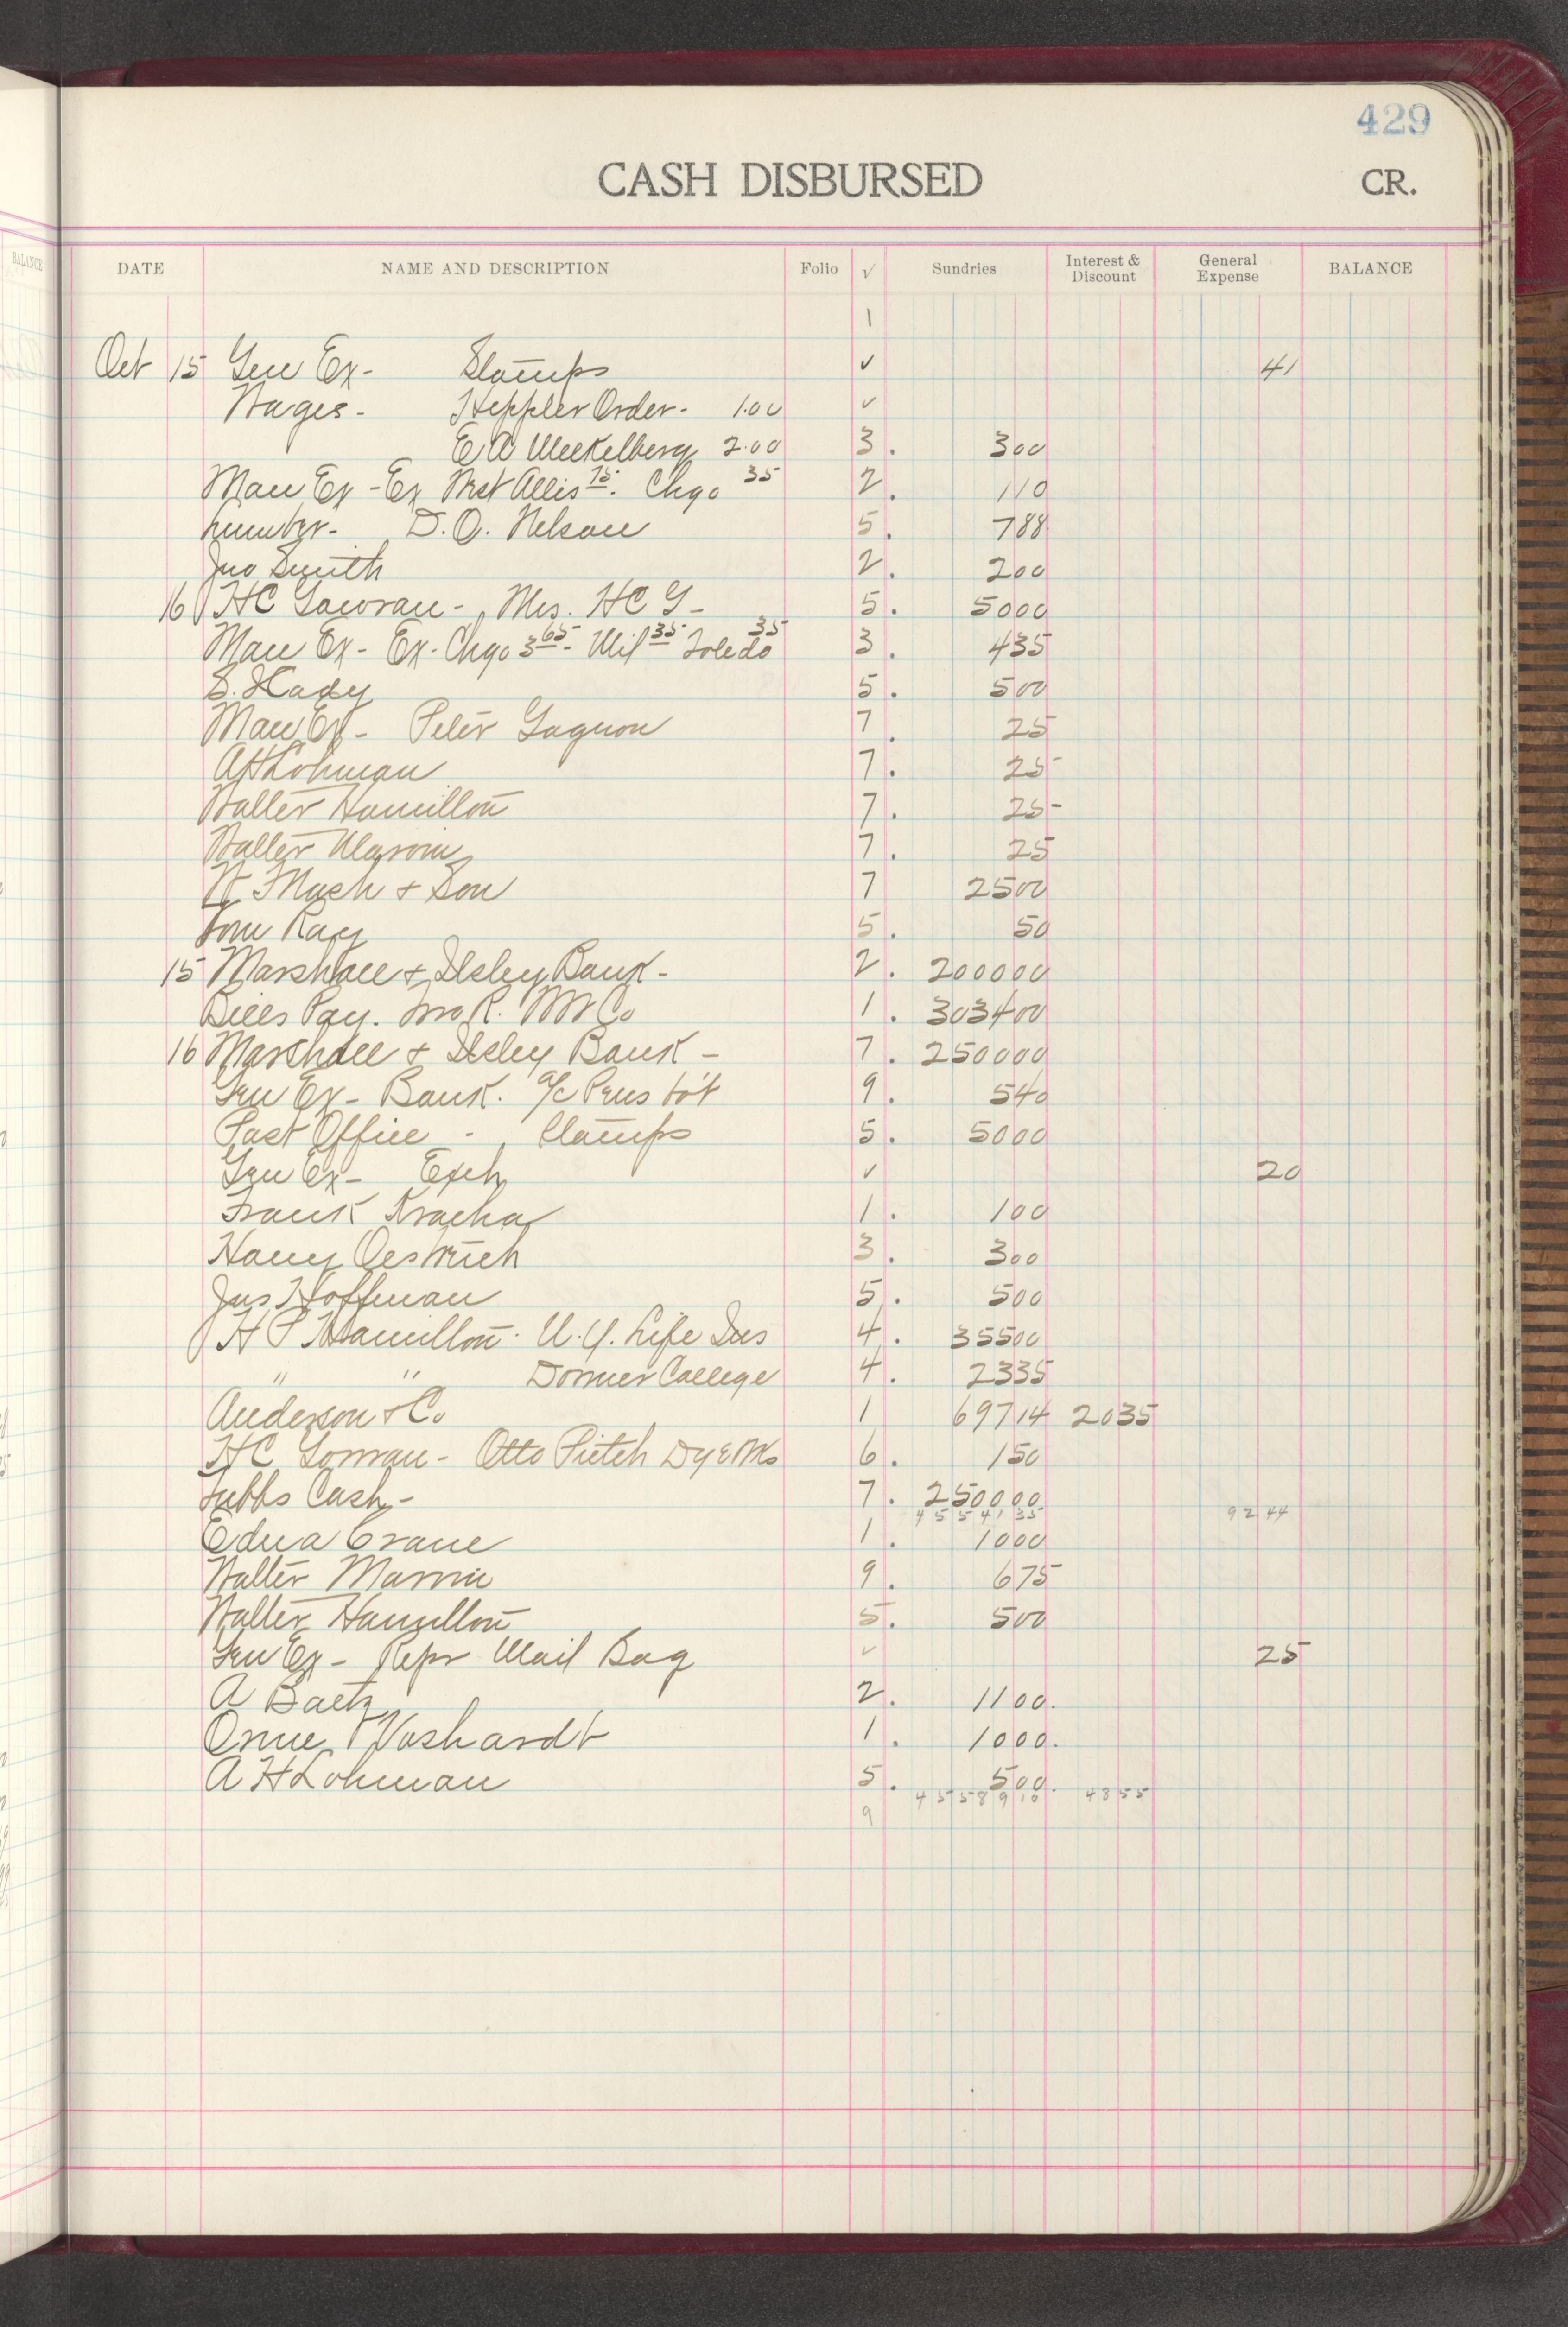 429
CASH DISBURSED CR.
DATE NAME AND DESCRIPTION Folio √ Sundries Interest & Discount General Expense BALANCE
1
Oct 15 Gen Ex- Stamps ✓ 41
Wages- Heppler Order- 1.00 ✓
E A Meckelberg 2.00 3. 300
Man Ex - Ex West Allis 75. Chgo 35 2. 110
Lumber- D.O. Nelson 5. 788
Jno Smith 2. 200
16 HC Gawran - Mrs. HC G- 5. 5000
Man Ex- Ex- Chgo 3 65 - Mil 35 Toledo 35 3. 435
S. Hady 5. 500
Man Ex - Peter Gagnon 7. 25
A H Lohman 7. 25
Walter Hamilton 7. 25-
Walter 7. 25
& Son 7 2500
Tom Ray 5. 50
15 Marshall & Ilsley Bank- 2. 200000
Bills Pay. Co 1. 303400
16 Marshall & Ilsley Bank - 7. 250000
Gen Ex - Bank. a/c 9. 540
Post Office - Stamps 5. 5000
Gen Ex- Exch ✓ 20
Frank Kracha 1. 100
Harry Oestrich 3. 300
Jas Hoffman 5. 500
H P Hamilton. N.Y. Life Ins 4. 35500
" " Downer College 4. 2335
Anderson & Co 1 69714 2035
HC Gowran - Otto Pietch Dye Wks 6. 150
Tubbs Cash- 7. 250000
4554135 9244
Edna Crane 1. 1000
Walter 9. 675
Walter Hamilton 5. 500
Gen Ex- Repr Mail Bag ✓ 25
A Baetz 2. 1100.
Orme Voshardt 1. 1000.
A H Lohman 5. 500.
4558910 4855
9
BALANCE